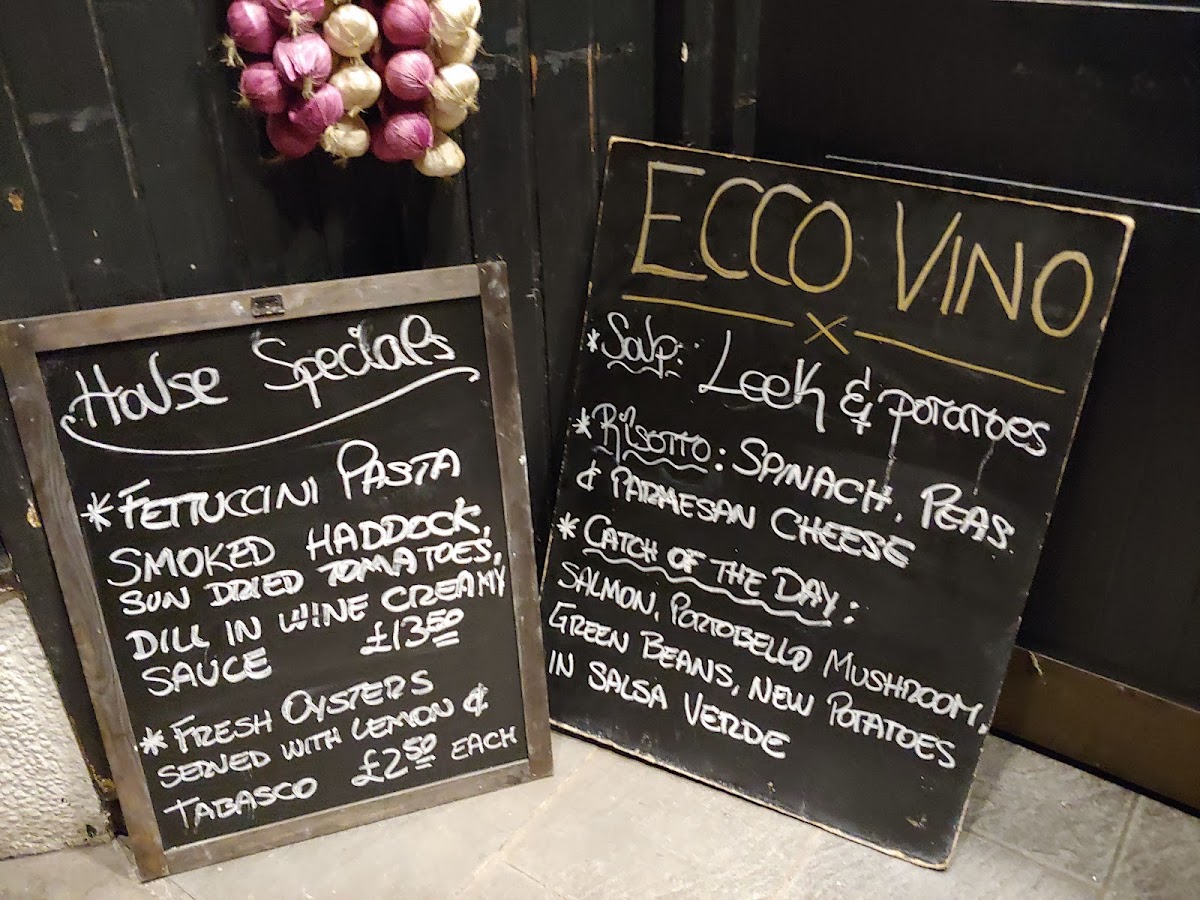 House Specials
*FETTUCCINI PASTA
SMOKED HADDOCK,
SUN DRIED TOMATOES,
DILL IN WINE CREAMY
SAUCE £13.50
*FRESH OYSTERS
SERVED WITH LEMON &
TABASCO £2.50 EACH
ECCO VINO
*Soup: Leek & potatoes
*RISOTTO: SPINACH, PEAS
& PARMESAN CHEESE
*CATCH OF THE DAY:
SALMON, PORTOBELLO MUSHROOM,
GREEN BEANS, NEW POTATOES
IN SALSA VERDE